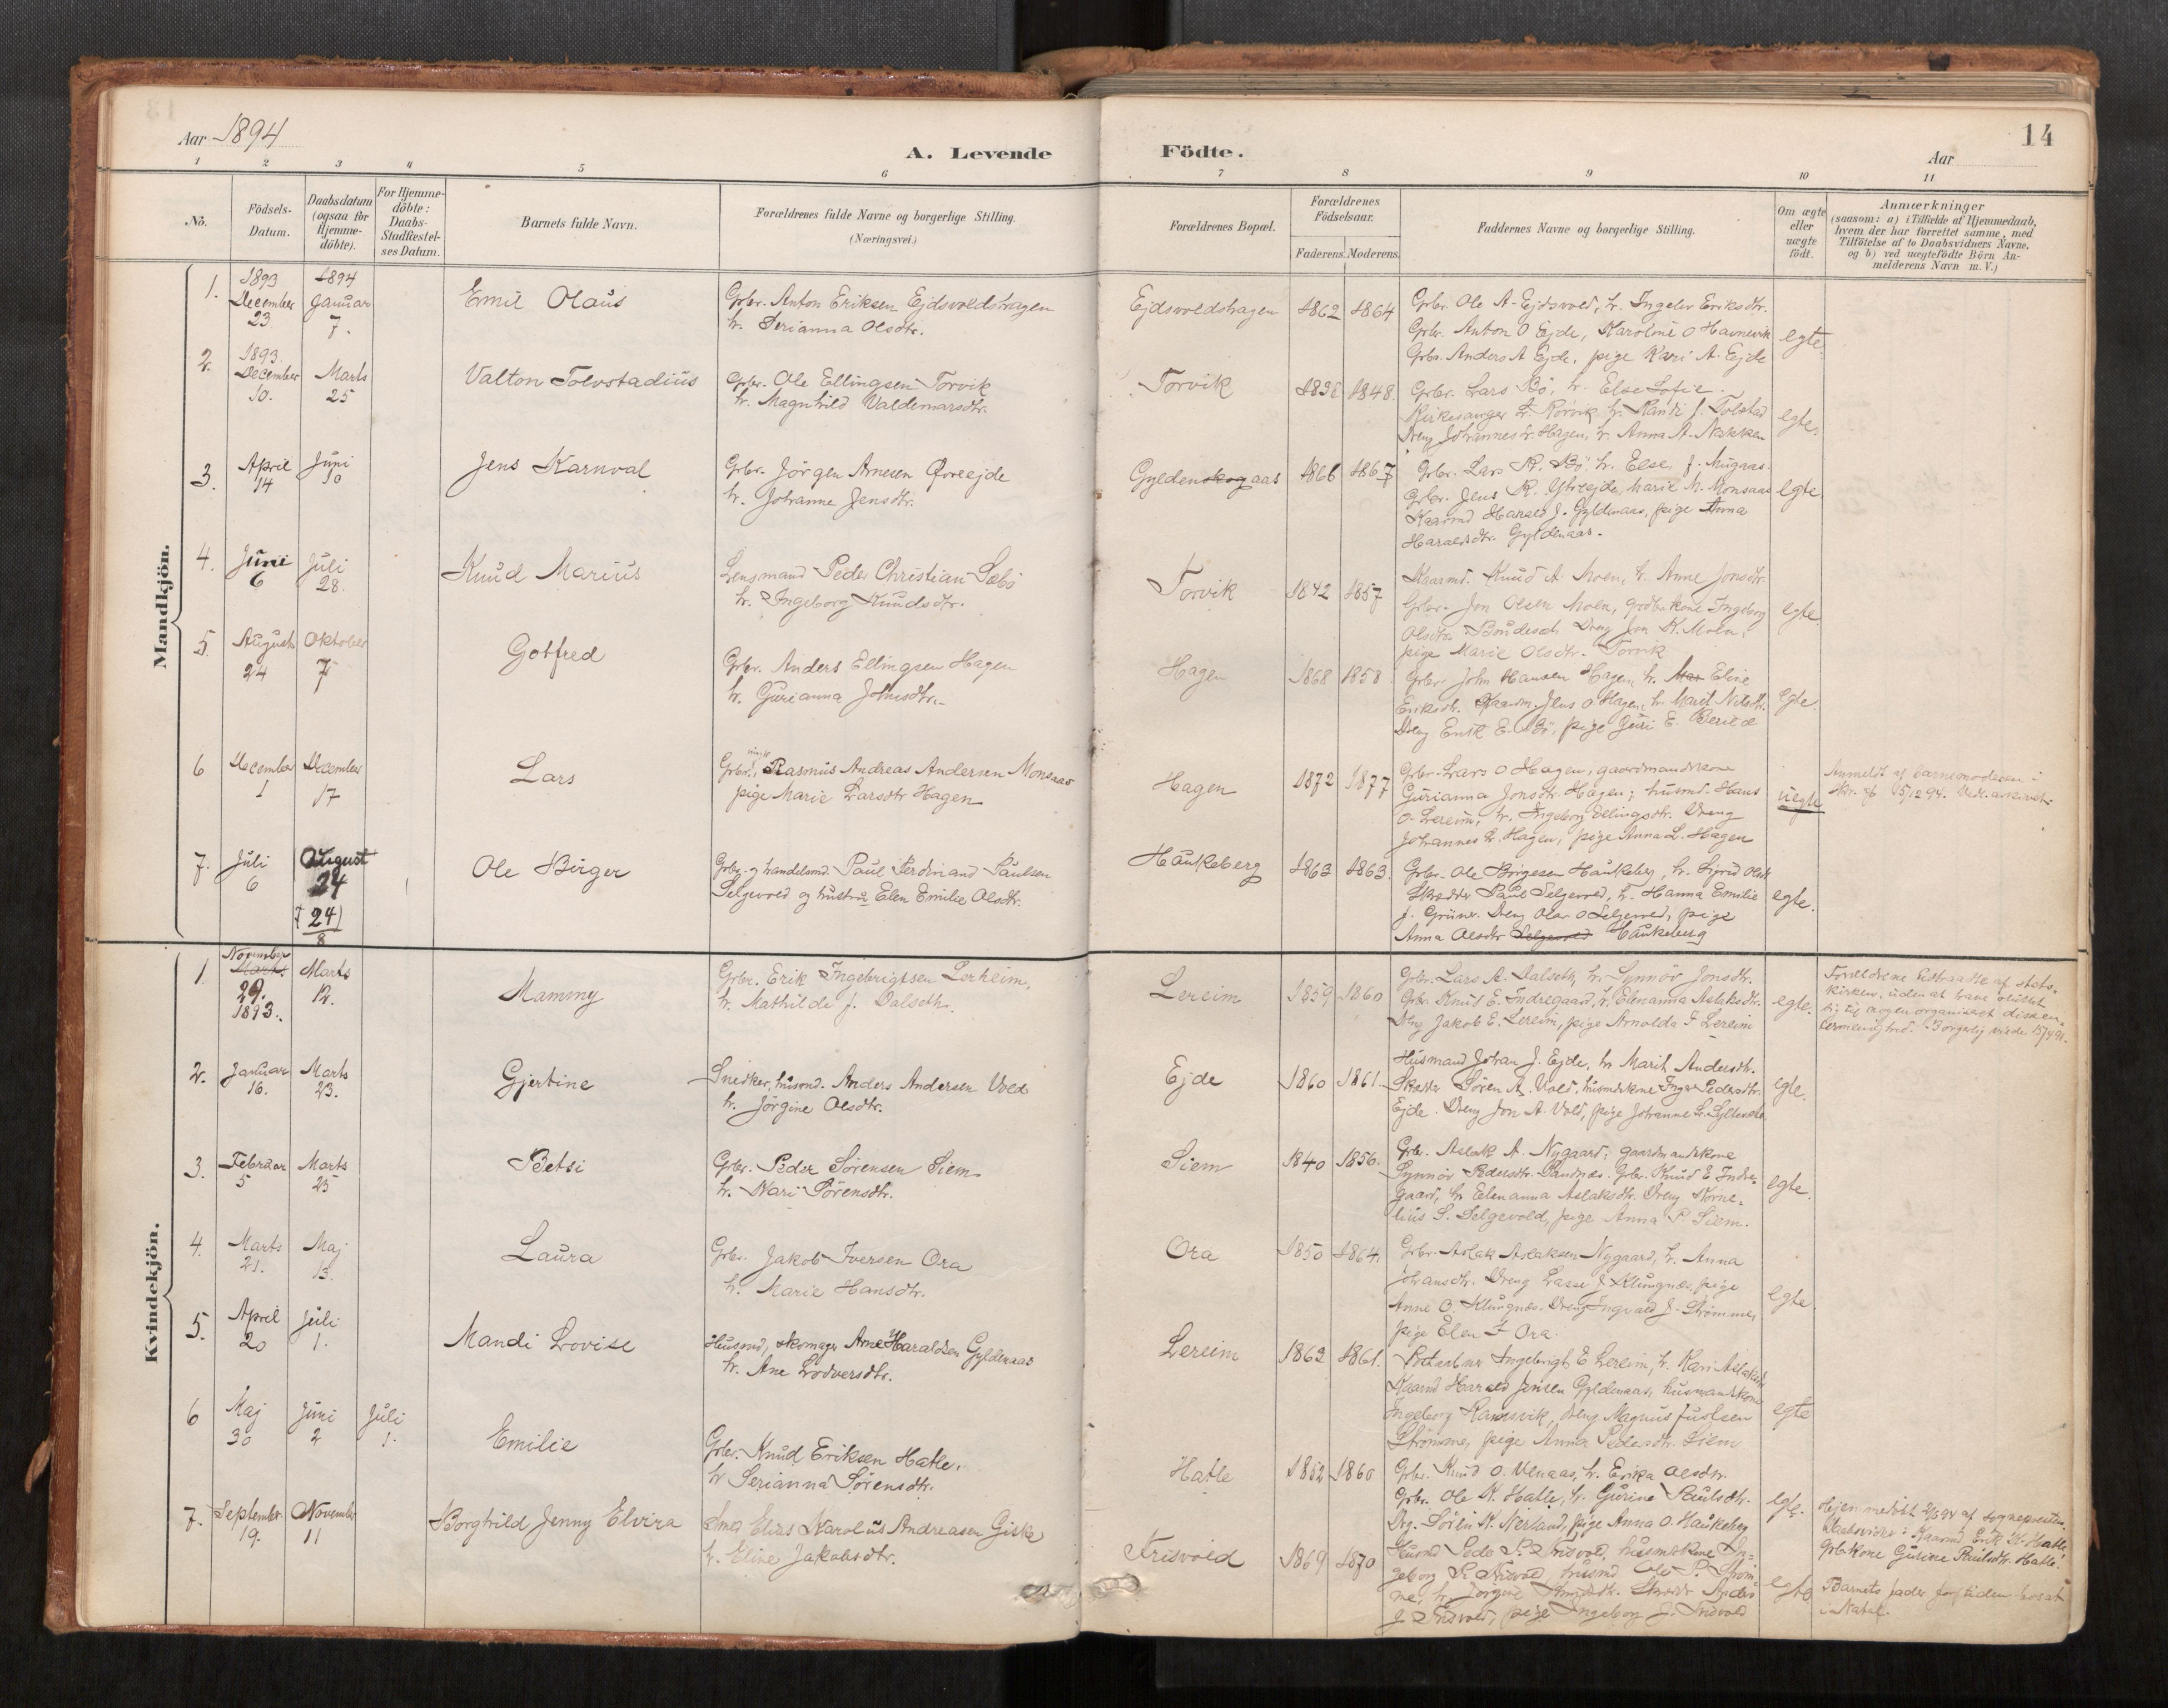 Aar 1894
A. Levende Födte.
Aar
14
1 2 3 4 5 6 7 8 9 10 11
No.
Födsels-Datum.
Daabsdatum (ogsaa for Hjemme-döbte).
For Hjemme-döbte: Daabs-Stadfæstel-ses Datum.
Barnets fulde Navn.
Forældrenes fulde Navne og borgerlige Stilling.
(Næringsvei.)
Forældrenes Bopæl.
Forældrenes Födselsaar.
Faderens. Moderens.
Faddernes Navne og borgerlige Stilling.
Om ægte eller uægte födt.
Anmærkninger
(saasom: a) i Tilfælde af Hjemmedaab, hvem der har forrettet samme, med Tilföielse af to Daabsvidners Navne, og b) ved uægtefödte Börn An-melderens Navn m. V.)
Mandkjön.
1. 1893 December 23 1894 Januar 7. Emil Olaus
Grbr. Anton Eriksen Ejdsvoldshagen
h. Serianna Olsdtr.
Ejdsvoldshagen 1862 1864
Grbr. Ole A. Ejdsvold, h. Ingelev Eriksdtr.
Grbr. Anton O Ejde, Karoline O Havnevik
Grbr. Anders A Ejde, pige Kari A. Ejde
egte.
2. 1893. December 10. Marts 25 Valton Tolvstadius
Grbr. Ole Ellingsen Torvik
h. Magnhild Valdemarsdtr.
Torvik 1848.
Grbr. Lars Bö, h. Else Sofie.
Kirkesanger L. Rörvik, h. Randi J. Tolstad
Dreng Johannes L. Hagen, h. Anna A. Nakken
egte.
3. April 14 Juni 10 Jens Karnval
Grbr. Jörgen Arnesen Övreejde
h. Johanne Jensdtr.
Gyldenskogaas 1866 1867
Grbr. Lars R. Bö, h. Else J.
Grbr. Jens R. Ytreejde, Marie M. Monsaas
Kaarmd Harald J. Gyldenaas, pige Anna
Haraldsdtr. Gyldenaas.
egte.
4. Juni 6 Juli 28. Knud Marius
Lensmand Peder Christian Sæbö
h. Ingeborg Knudsdtr.
Torvik 1842 1857
Kaarmd. Knud A. Moen, h. Anne Jonsdtr.
Grbr. Jon Olsen Moen, grdbr.kone Ingeborg
Olsdtr. Dreng Jon K. Moen,
pige Marie Olsdtr. Torvik
egte.
5. August 24 Oktober 7 Gotfred
Grbr. Anders Ellingsen Hagen
h. Gurianna Johnsdtr.
Hagen 1868 1858
Grbr. John Hansen Hagen, h. Mar Eline
Eriksdtr. Kaarm. Jens O Hagen, h. Marit Nilsdtr.
Dreng Erik E. Bö, pige Guri E.
egte.
6 December 1 December 17 Lars
Grbr. Rasmus Andreas Andersen Monsaas
pige Marie Larsdtr Hagen
Hagen 1872 1877
Grbr. Lars O Hagen, gaardmandskone
Gurianna Jonsdtr. Hagen; husmd. Hans
O. Lereim, h. Ingeborg Ellingsdtr. Dreng
Johannes L. Hagen, pige Anna L. Hagen
uegte
Anmeldt af barnemoderen i
7. Juli 6 August 24 24/8 Ole Birger
Grbr. og handelsmd. Paul Ferdinand Paulsen
Selgevold og hustru Elen Emilie Olsdtr.
Haukeberg 1862 1863.
Grbr. Ole Börgesen Haukeberg, h. Sigrid Olsdtr
Skrædder Paul Selgevold, h. Hanna Emilie
J. Grüner. Dreng Olav O Selgevold, pige
Anna Olsdtr Selgevold Haukeberg
egte.
Kvindekjön.
1. November Marts 29. 1893. Marts 12. Mammy
Grbr. Erik Ingebrigtsen Lerheim,
h. Mathilde J. Dalseth.
Lereim 1859 1860
Grbr. Lars A. Dalseth, h. Synnöv Jonsdtr.
Grbr. Knud E. Indregaard, h. Elenanna Aslaksdtr.
Dreng Jakob E. Lereim, pige Arnolda I Lereim
egte.
Forældrene udtraadte af stats-
kirken, uden at have sluttet
sig til nogen organiseret dissen-
termenighed. Borgerlig viede 15/4 91.
2. Januar 16. Marts 23. Gjertine
Snedker, husmd. Anders Andersen Vold
h. Jörgine Olsdtr.
Ejde 1860 1861.
Husmand Johan J. Ejde, h. Marit Andersdtr.
Skrædder Sören A. Vold, husmdskone Inger Pedersdtr.
Ejde. Dreng Jon A. Vold, pige Johanne L.
egte.
3. Februar 5 Marts 25 Betsi
Grbr. Peder Sörensen Siem
h. Kari Sörensdtr.
Siem 1840 1856.
Grbr. Aslak A. Nygaard; gaardmandskone
Synnöv Pedersdtr. Sandnæs. Grbr. Knud E Indre-
gaard, h. Elenanna Aslaksdtr. Dreng Korne-
lius S. Selgevold, pige Anna P. Siem.
egte.
4. Marts 21. Maj 13. Laura
Grbr. Jakob Iversen Ora
h. Marie Hansdtr.
Ora 1850 1864.
Grbr. Aslak Aslaksen Nygaard, h. Anna
Johansdtr. Dreng Lasse J Klungnæs, pige
Anne O. Klungnæs. Dreng Ingvald J. Strömme,
pige Elen I Ora.
egte.
5. April 20 Juli 1. Mandi Lovise
Husmd, skomager Arne Haraldsen Gyldenaas
h. Ane Lodversdtr.
Lereim 1862 1861.
Ingebrigt E Lereim, h. Kari Aslaksdtr
Kaarmd Harald Jensen Gyldenaas, husmandskone
Ingeborg Ramsvik, dreng Magnus Juulsen
Strömme, pige Anna Pedersdtr. Siem
egte
6 Maj 30 Juni 2 Juli 1. Emilie
Grbr. Knud Eriksen Hatle,
h. Serianna Sörensdtr.
Hatle 1852 1860
Grbr. Knud O. h. Erika Olsdtr.
Grbr. Ole K. Hatle, h. Gurine Paulsdtr.
Drg. Sören K. Nesland, pige Anna O. Haukeberg
egte.
Hjemmedöbt 2/6 94 af sognepresten.
Daabsvidner: Kaarmd Erik K. Hatle,
grbrkone Gurine Paulsdtr. Hatle.
7. September 19. November 11 Borghild Jenny Elvira
Smed Elias Karolus Andreasen Giske
h. Eline Jakobsdtr.
Frisvold 1869 1870
Husmd Peder P. Frisvold, husmdskone In-
geborg P. Frisvold, husmd Ole P. Ström-
me, h. Jörgine Knudsdtr. Anders
J. Frisvold, pige Ingeborg J. Frisvold
egte
Barnets fader for tiden bosat
i Natal.